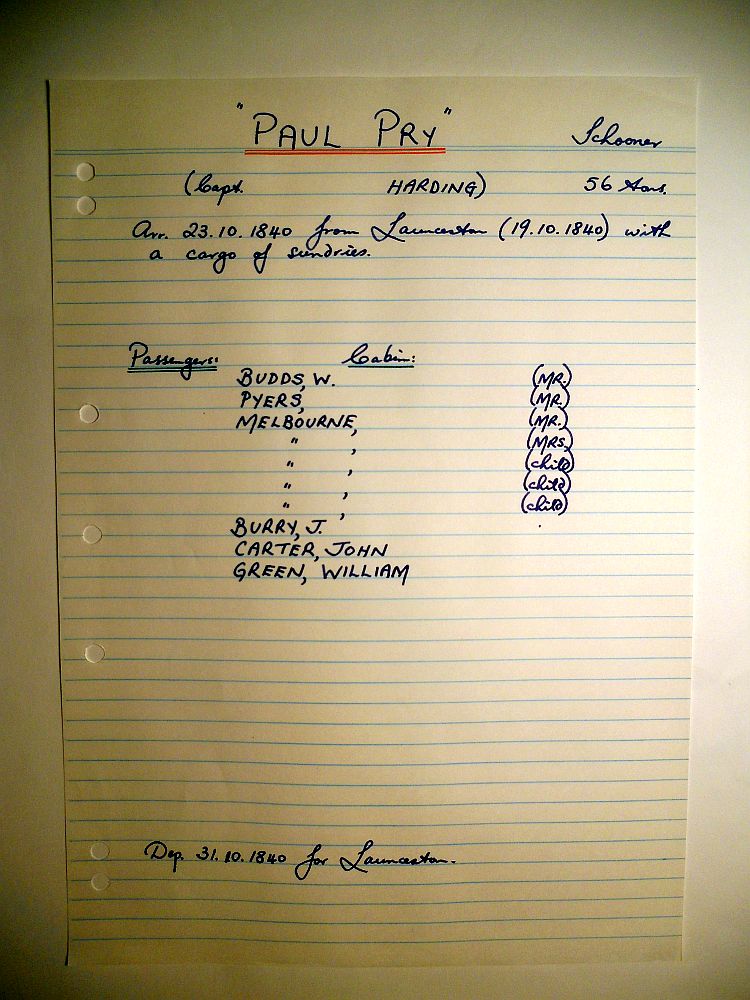 "PAUL PRY" Schooner
(Capt. HARDING) 56 tons.
Arr. 23.10.1840 from Launceston (19.10.1840) with
a cargo of sundries.
Passengers: Cabin:
BUDDS, W. (MR.)
PYERS, (MR.)
MELBOURNE, (MR.)
" , (MRS.)
" , (child)
" , (child)
" , (child)
BURRY, J.
CARTER, JOHN
GREEN, WILLIAM
Dep. 31.10.1840 for Launceston.